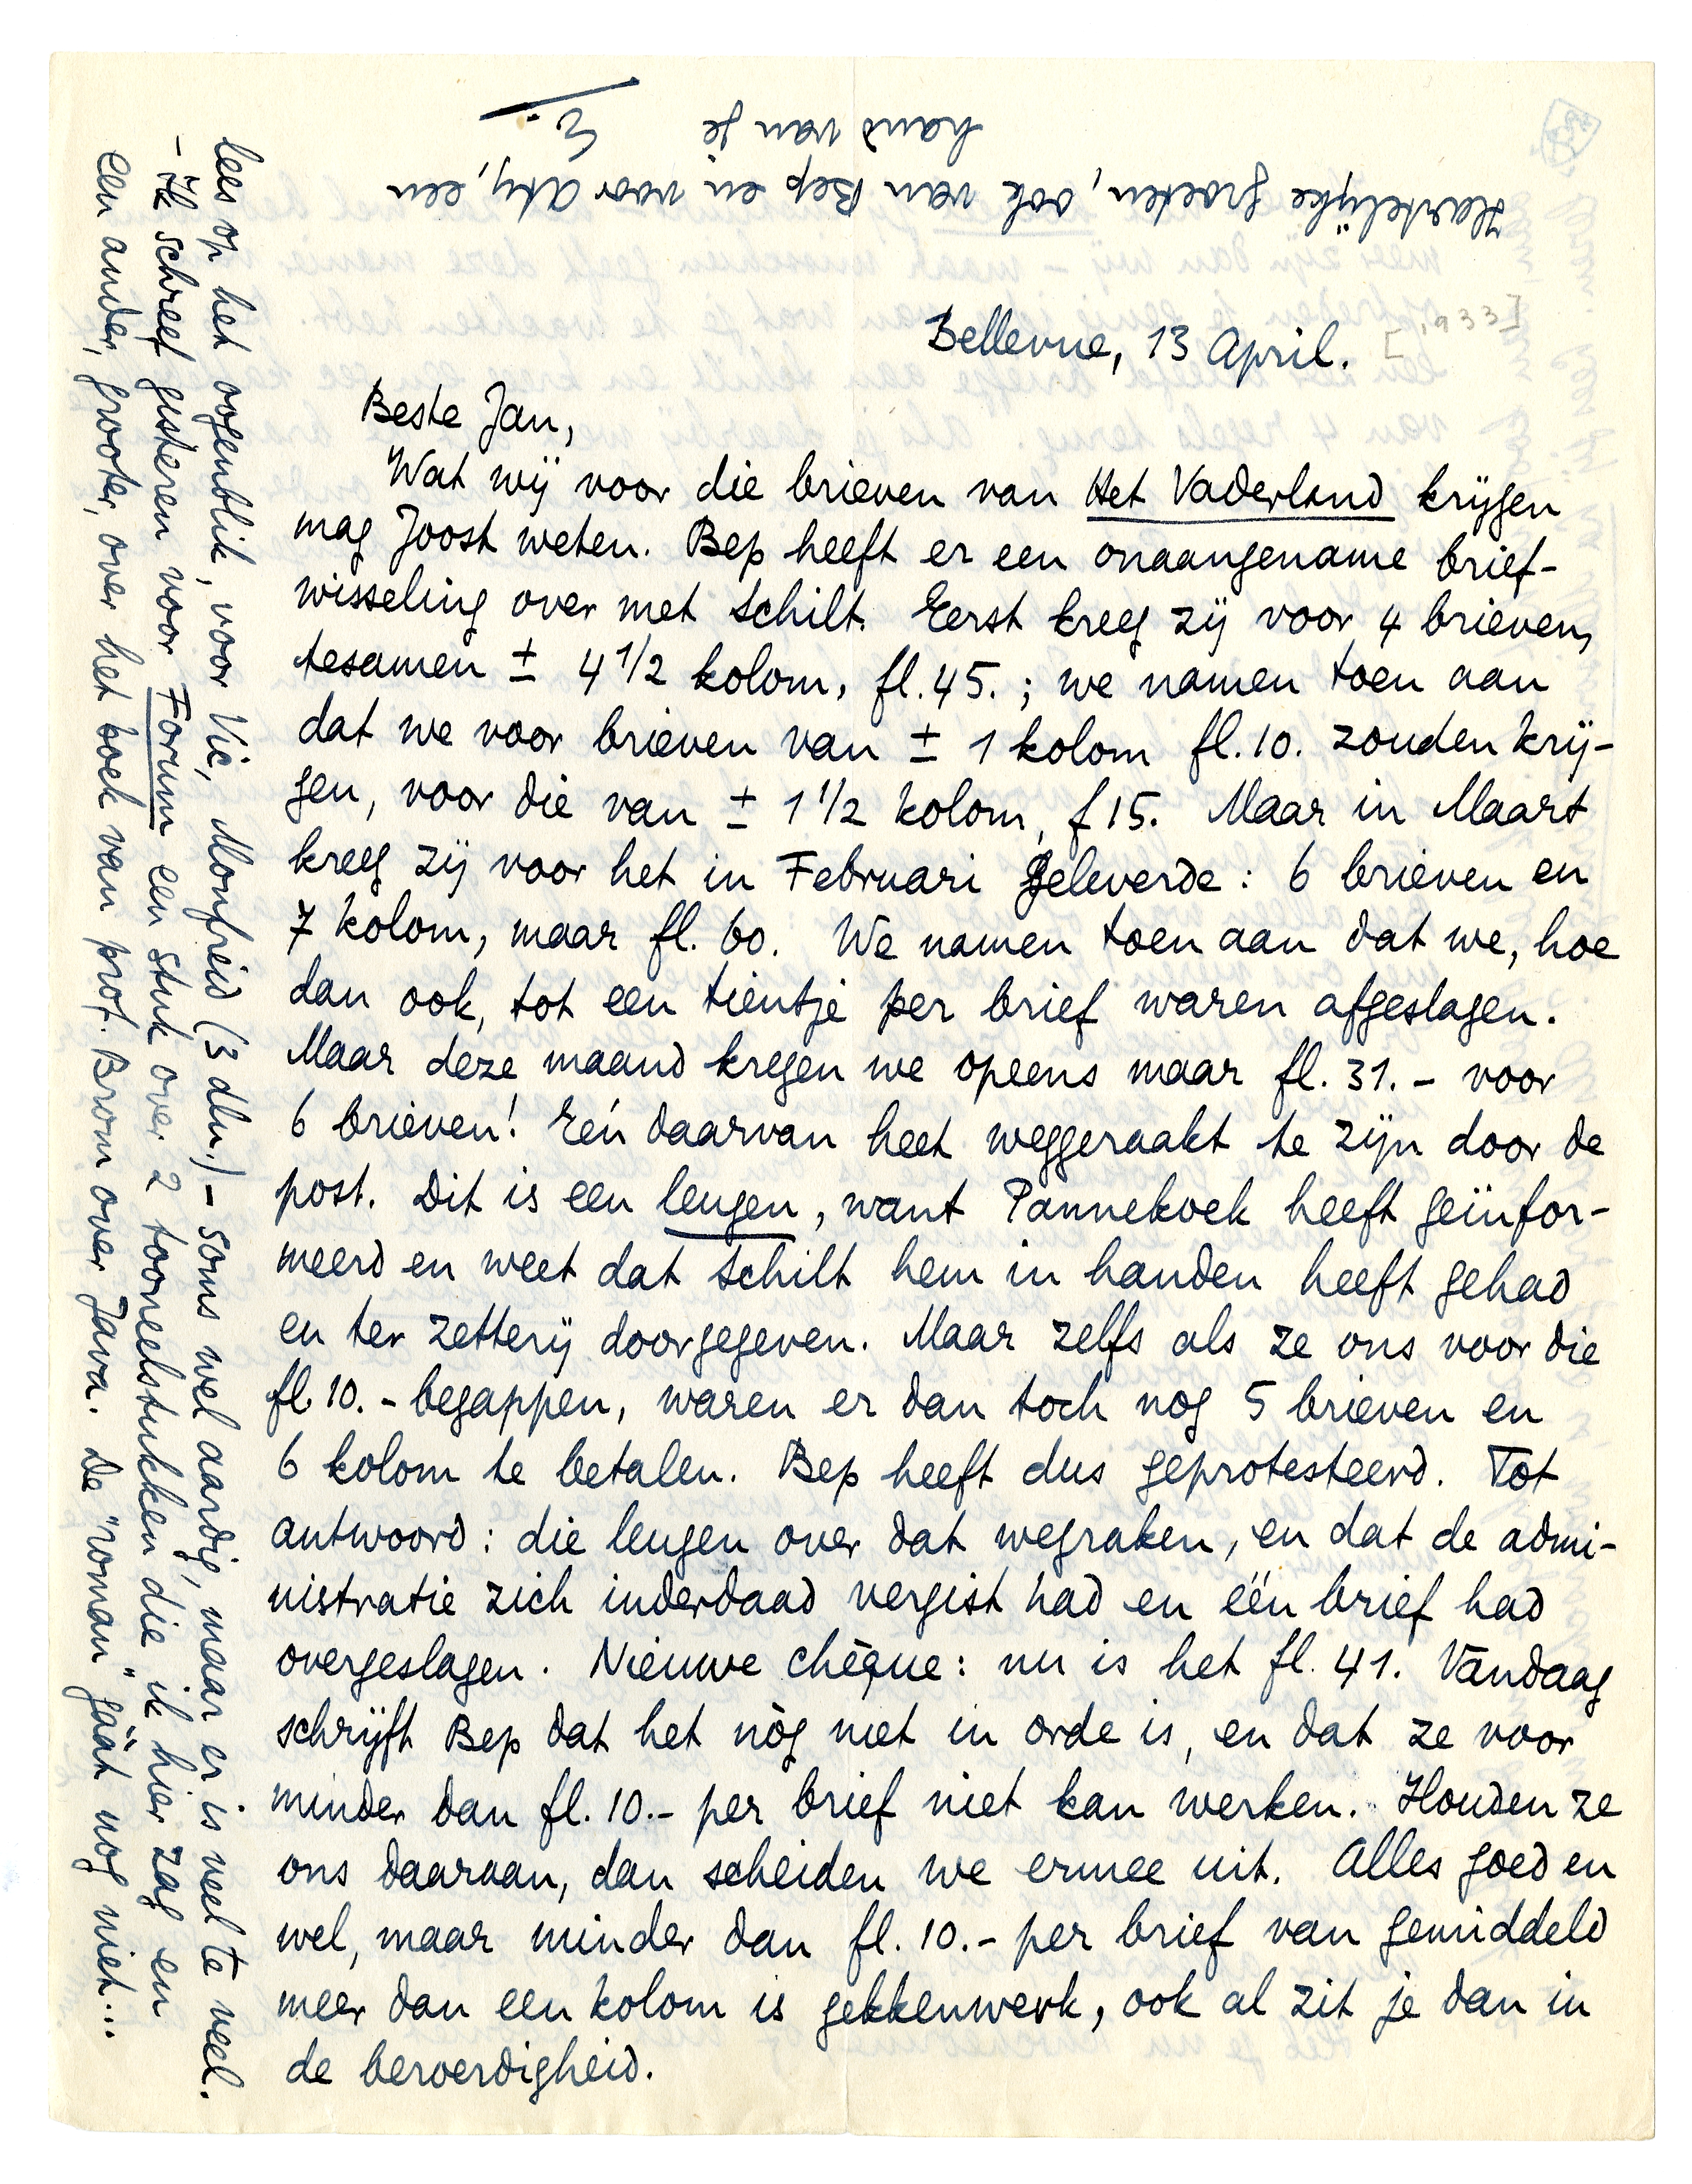 Bellevue, 13 April. [1933]
Beste Jan,
Wat wij voor die brieven van Het Vaderland krijgen
mag Joost weten. Bep heeft er een onaangename brief-
wisseling over met Schilt. Eerst kreeg zij voor 4 brieven,
tesamen ± 4 1/2 kolom, fl. 45. ; we namen toen aan
dat we voor brieven van ± 1 kolom fl. 10. zouden krij-
gen, voor die van ± 1 1/2 kolom, f 15. Maar in Maart
kreeg zij voor het in Februari geleverde: 6 brieven en
7 kolom, maar fl. 60. We namen toen aan dat we, hoe
dan ook, tot een tientje per brief waren afgeslagen.
Maar deze maand kregen we opeens maar fl. 31. - voor
6 brieven! Eén daarvan heet weggeraakt te zijn door de
post. Dit is een leugen, want Pannekoek heeft geïnfor-
meerd en weet dat Schilt hem in handen heeft gehad
en ter zetterij doorgegeven. Maar zelfs als ze ons voor die
fl. 10. - begappen, waren er dan toch nog 5 brieven en
6 kolom te betalen. Bep heeft dus geprotesteerd. Tot
antwoord: die leugen over dat wegraken, en dat de admi-
nistratie zich inderdaad vergist had en één brief had
overgeslagen. Nieuwe chèque: nu is het fl. 41. Vandaag
schrijft Bep dat het nòg niet in orde is, en dat ze voor
minder dan fl. 10.- per brief niet kan werken. Houden ze
ons daaraan, dan scheiden we ermee uit. Alles goed en
wel, maar minder dan fl. 10.- per brief van gemiddeld
meer dan een kolom is gekkenwerk, ook al zit je dan in
de beroerdigheid.
lees op het oogenblik, voor Vic, Monfreid (3 dln.) - soms wel aardig, maar er is veel te veel.
- Ik schreef gisteren voor Forum een stuk over 2 tooneelstukken die ik hier zag en
een ander, grooter, over het boek van prof. Brom over Java. De "roman" gáát nog niet...
Hartelijke groeten, ook van Bep en voor Aty, een
hand van je
E.